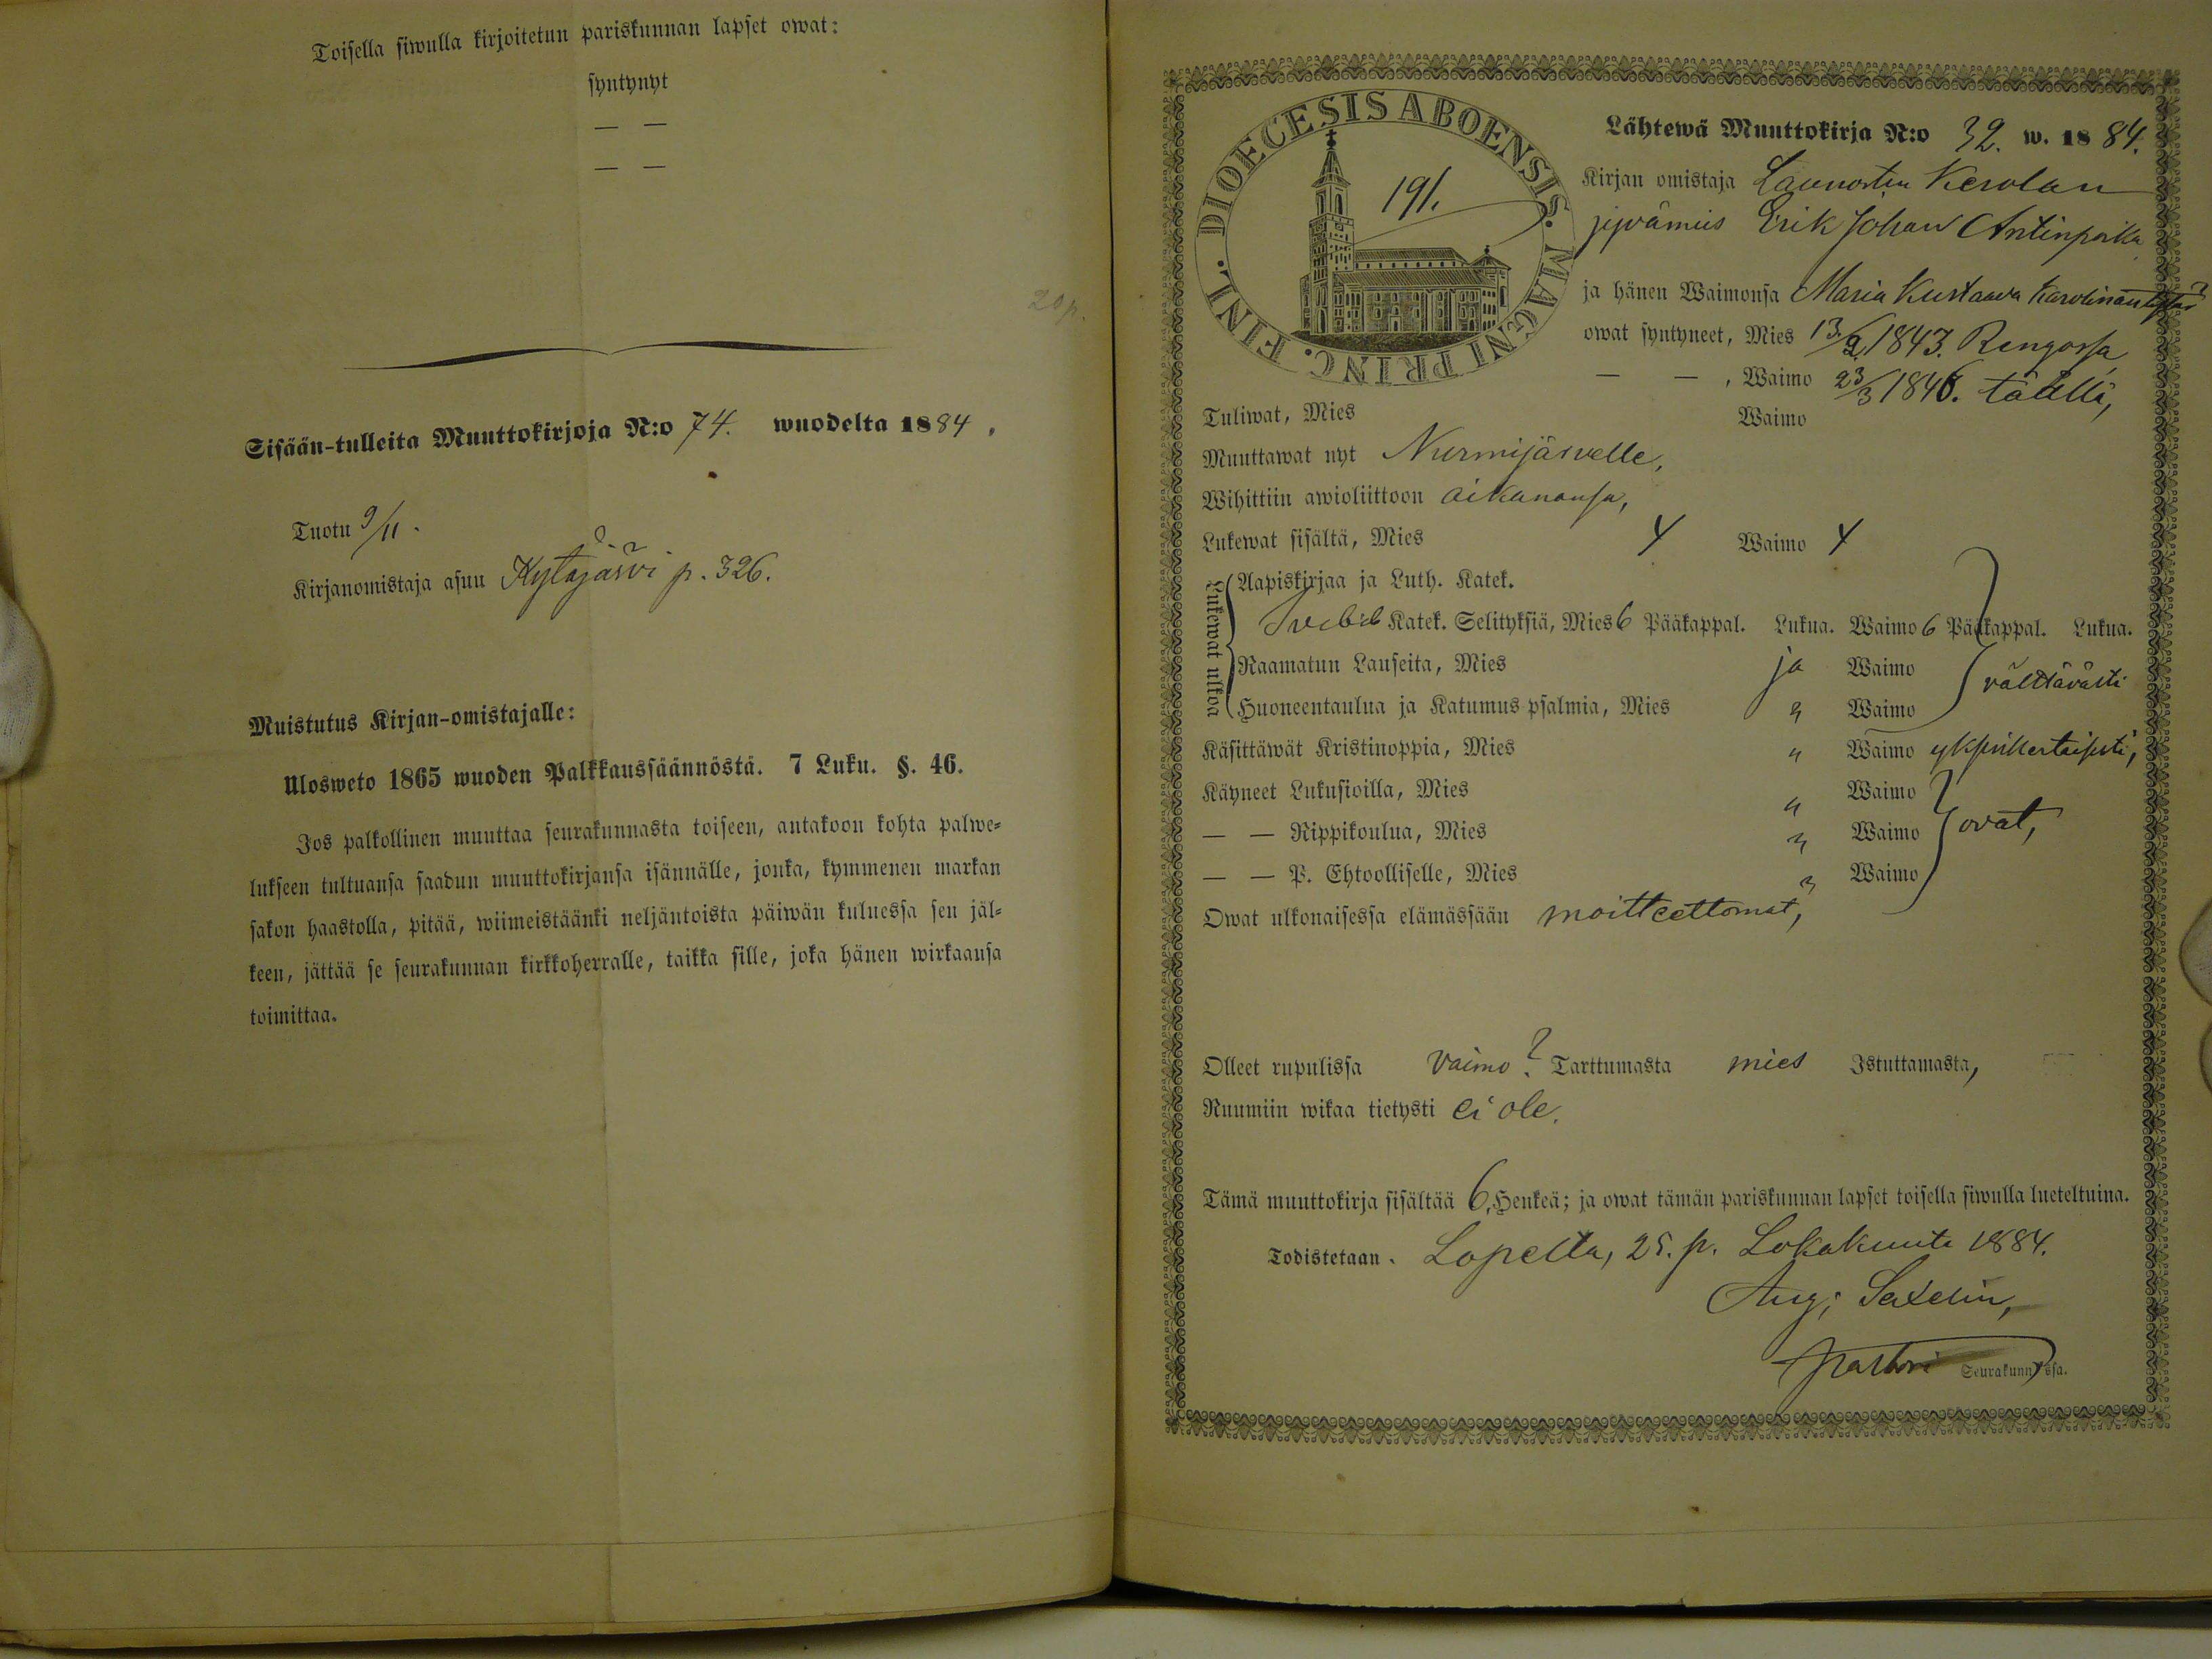 Toisella siwulla kirjoitetun pariskunnan lapset owat:
syntynyt
— —
— —
20 p.
Sisään-tulleita Muuttokirjoja N:o 74. wuodelta 1884.
Tuotu 9/11.
Kirjanomistaja asuu Kytäjärvi p. 326.
Muistutus Kirjan-omistajalle:
Ulosweto 1865 wuoden Palkkaussäännöstä. 7 Luku. §. 46.
Jos palkollinen muuttaa seurakunnasta toiseen, antakoon kohta palwe-
lukseen tultuansa saadun muuttokirjansa isännälle, jonka, kymmenen markan
sakon haastolla, pitää, wiimeistäänki neljäntoista päiwän kuluessa sen jäl-
keen, jättää se seurakunnan kirkkoherralle, taikka sille, joka hänen wirkaansa
toimittaa.
DIOECESIS ABOENSIS. MAGNI PRINC. FINL.
191.
Lähtewä Muuttokirja N:o 32. w. 1884.
Kirjan omistaja Launosten Kerolan
jyvämies Erik Johan Antinpoika
ja hänen Waimonsa Maria Kustaava Karolinantytär
owat syntyneet, Mies 13/2 1843. Rengossa,
— — , Waimo 23/3 1846. täällä,
Tuliwat, Mies Waimo
Muuttawat nyt Nurmijärvelle,
Wihittiin awioliittoon aikanansa,
Lukewat sisältä, Mies Waimo
Lukewat ulkoa
Aapiskirjaa ja Luth. Katek.
Svebil Katek. Selityksiä, Mies 6 Pääkappal. Lukua. Waimo 6 Pääkappal. Lukua.
Raamatun Lauseita, Mies ja Waimo
Huoneentaulua ja Katumus-psalmia, Mies " Waimo
välttävästi
Käsittäwät Kristinoppia, Mies " Waimo yksinkertaisesti,
Käyneet Lukusioilla, Mies " Waimo
— — Rippikoulua, Mies " Waimo ovat,
— — P. Ehtoolliselle, Mies " Waimo
Owat ulkonaisessa elämässään moitteettomat,
Olleet rupulissa vaimo? Tarttumasta mies Istuttamasta,
Ruumiin wikaa tietysti ei ole.
Tämä muuttokirja sisältää 6, Henkeä; ja owat tämän pariskunnan lapset toisella siwulla lueteltuina.
Todistetaan. Lopelta, 25. p. Lokakuuta 1884.
Aug;
pastori Seurakunnassa.